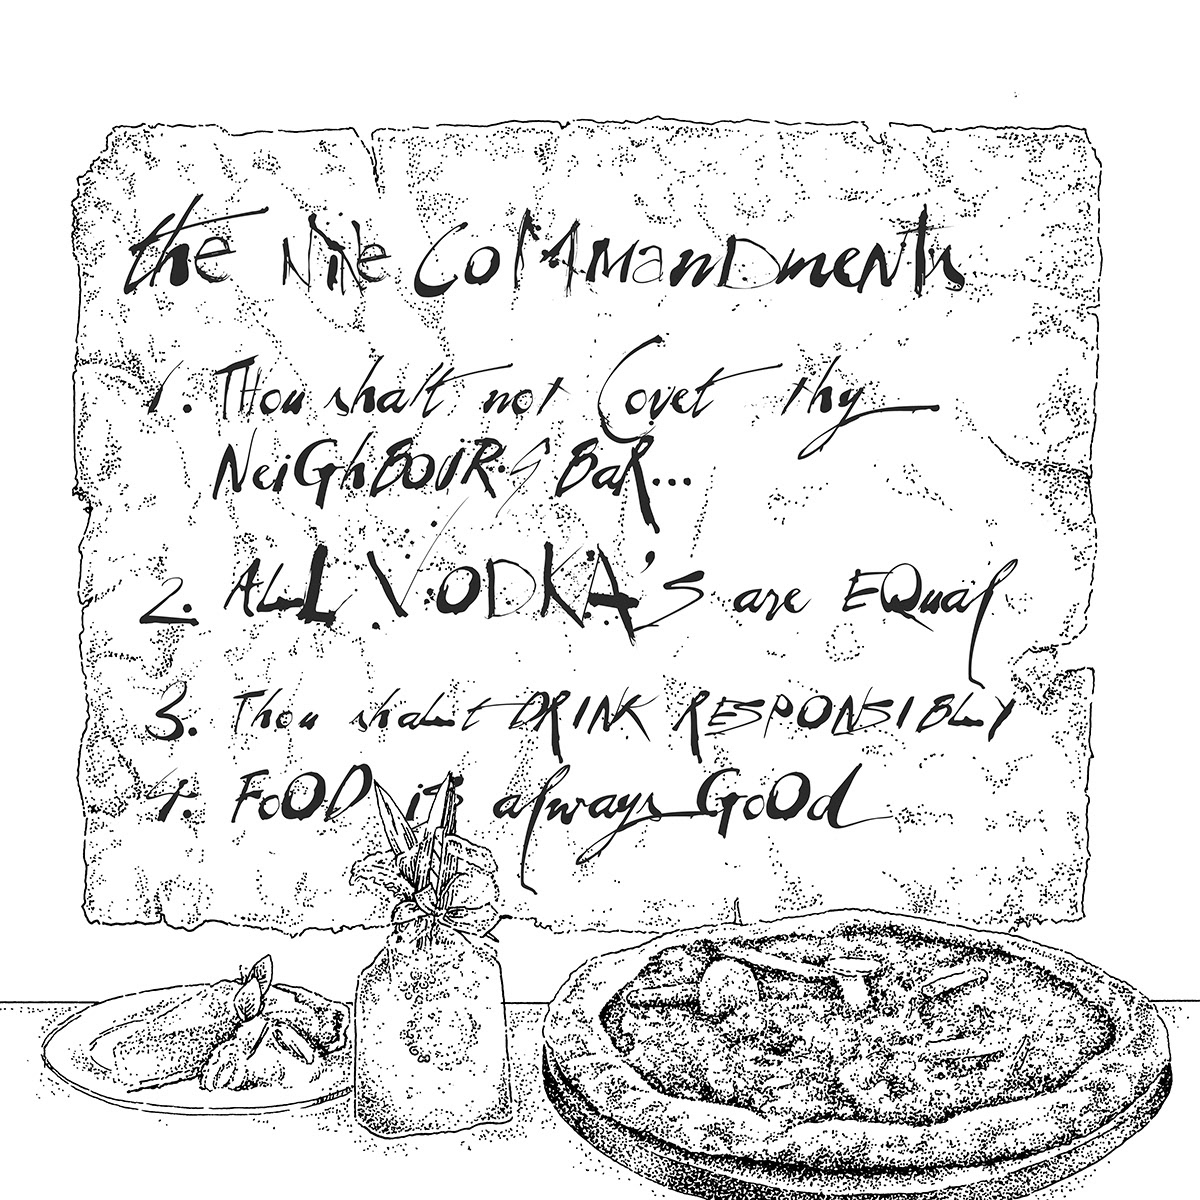 the Nine CoMMManDmenTs
1. THou shalt not Covet thy
NeiGhBOUR'S BaR...
2. ALL VODKA's are EQual
3. Thou shalt DRINK RESPONSIBLY
4. FoOD is always GoOd